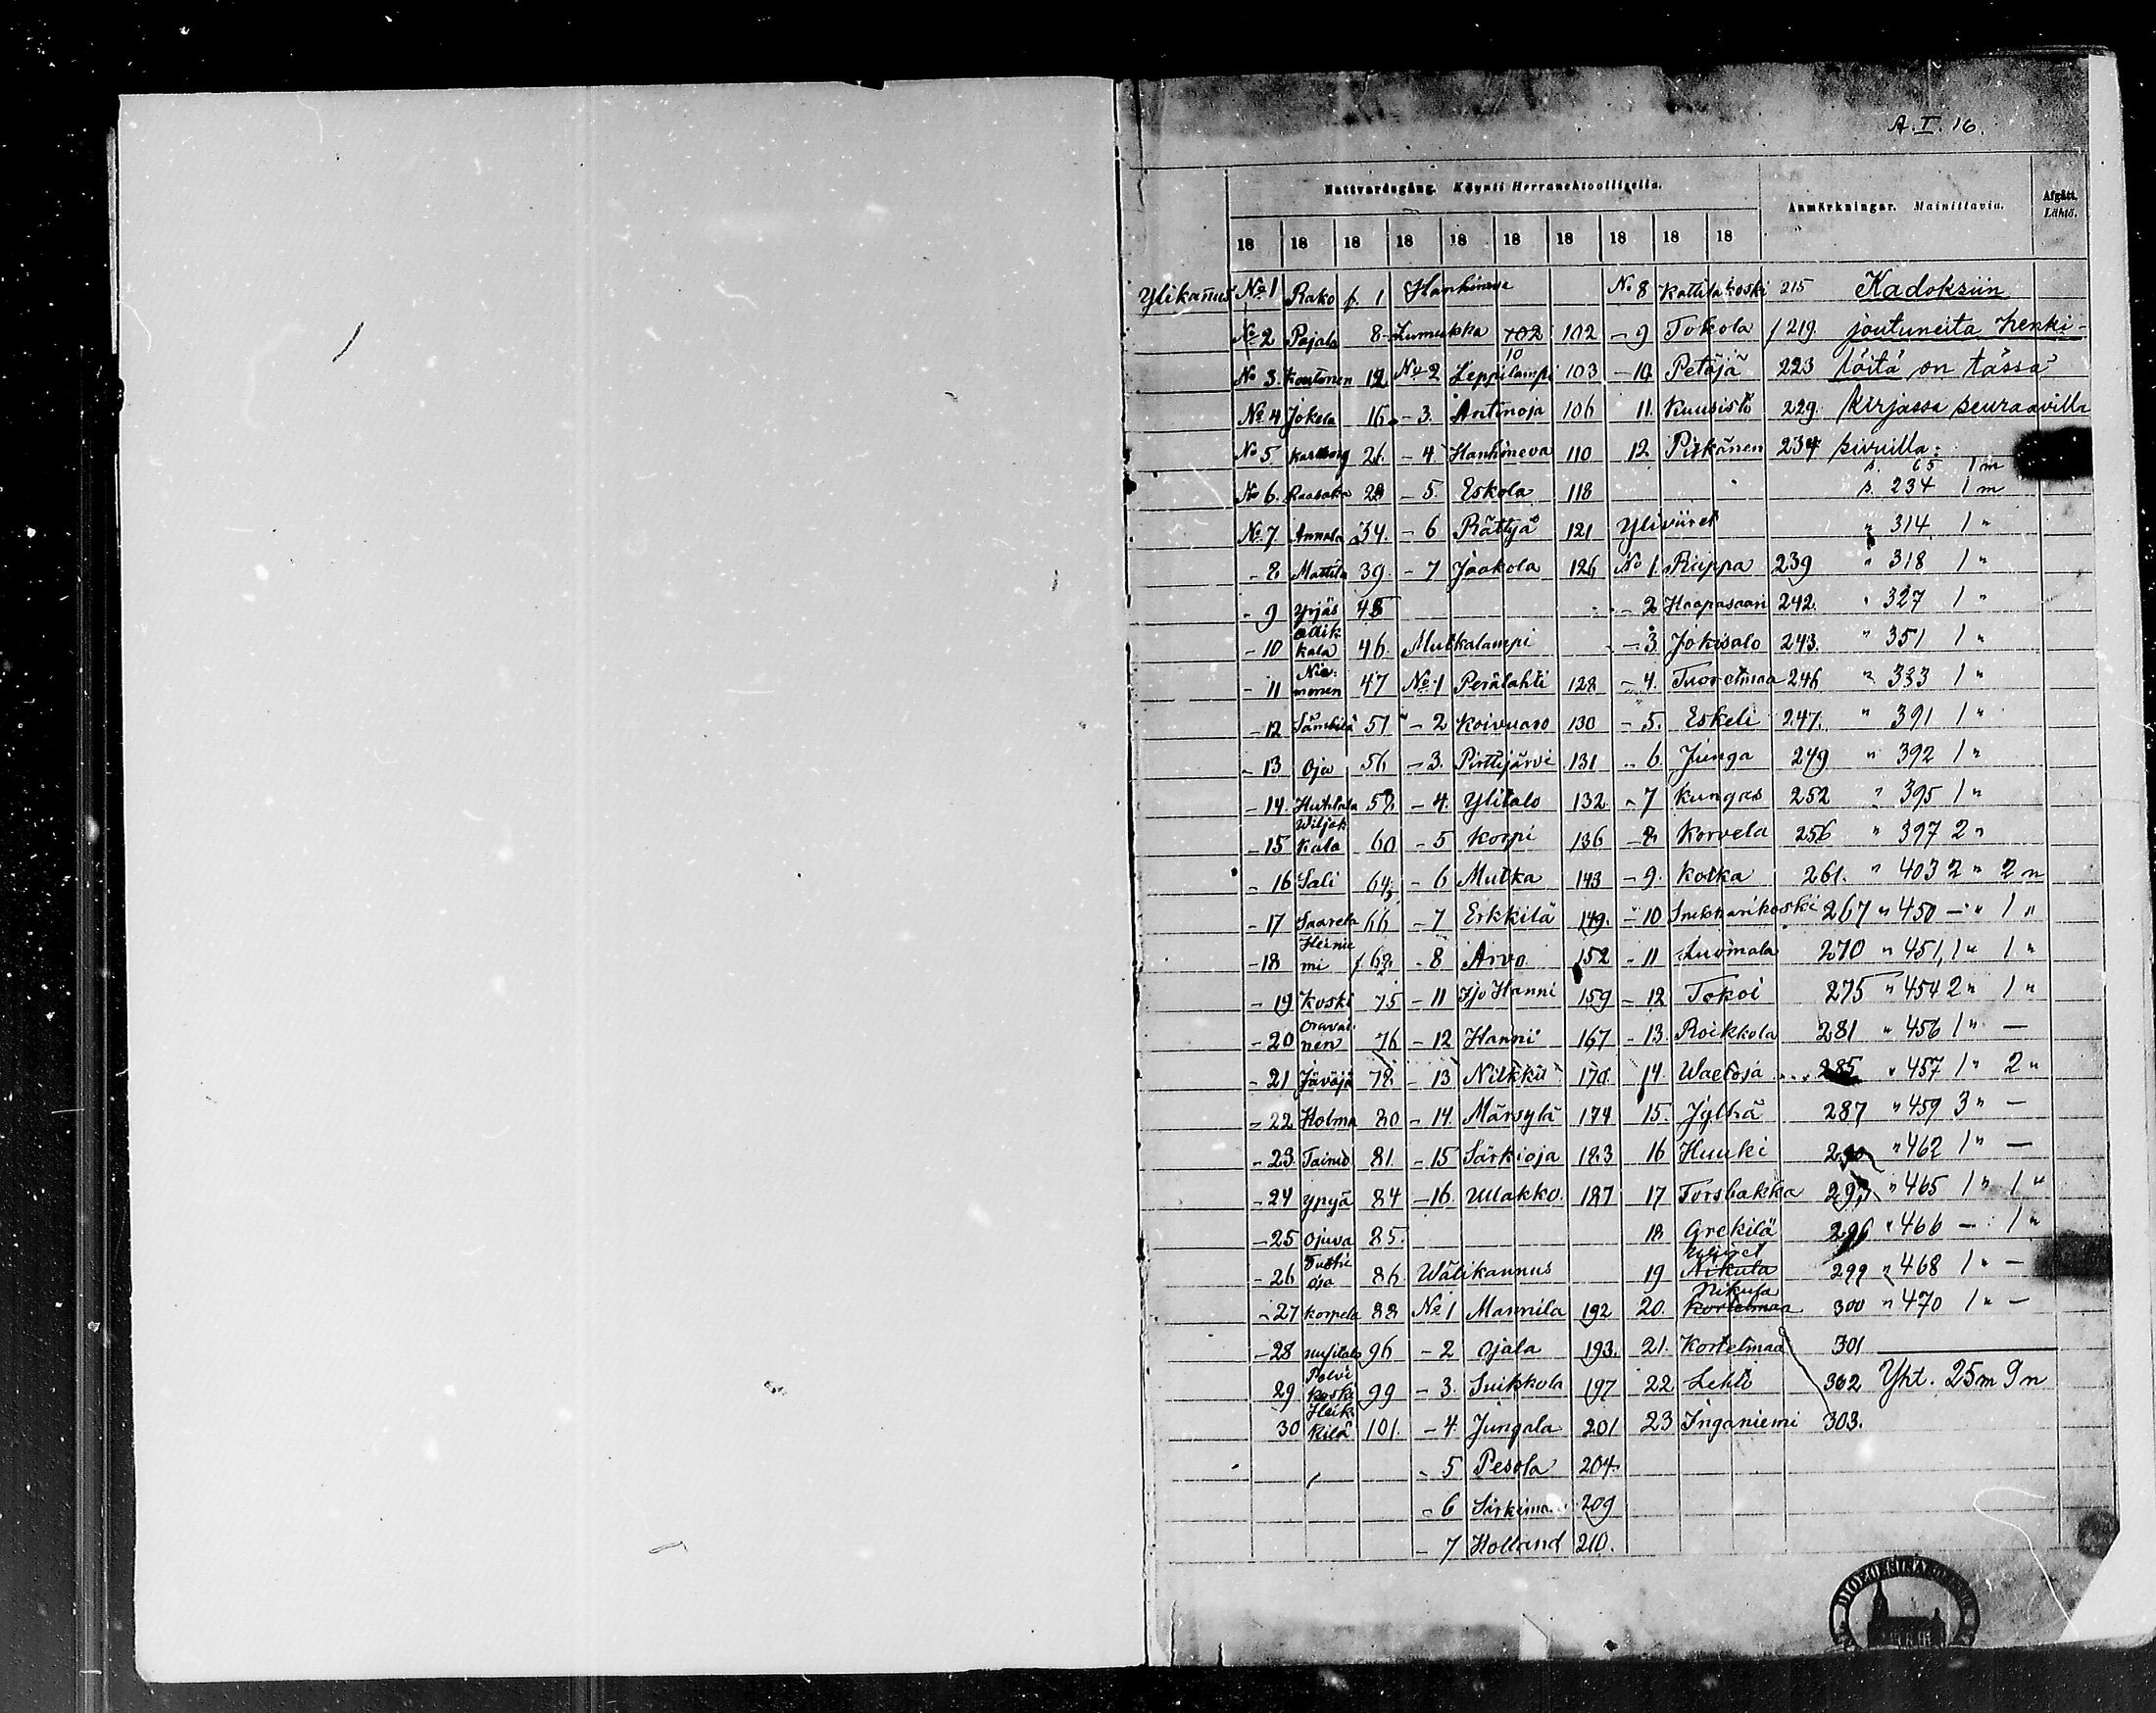 A. I. 16.
Nattvardsgång. Käynti Herranehtoollisella.
Anmärkningar. Mainittavia.
Afgått. Lähtö.
18 18 18 18 18 18 18 18 18 18
Ylikañus No 1 Rako p. 1 Hanhineva No 8 Kattilakoski 215 Kadoksiin
No 2 Pajala 8 Lumukka 102 102 - 9 Tokola / 219. joutuneita henki-
No 3. Kontonen 12 No 2 Leppilampi 103 - 10 Petäjä 223 löitä on tässä
No 4 Jokela 16. - 3. Antinoja 106 11. Kuusisto 229. kirjassa seuraavilla
No 5. 26. - 4 Hanhineva 110 12 Pitkänen 234 sivuilla:
s. 65 1 m
No 6. Raasaka 28 - 5. Eskola 118 s. 234 1 m
No 7. Annala 34. - 6 Rättyä 121 Yliviiret " 314 1 "
- 8 Mattila 39. - 7 Jaakola 126 No 1. Riippa 239 " 318 1 "
- 9 Yrjäs 45 - 2 Haapasaari 242. " 327 1 "
- 10 kala 46. Mutkalampi - 3. Jokisalo 243. " 351 1 "
- 11 Nie-monen 47 No 1 Perälahti 128 - 4. Tuoretmaa 246 " 333 1 "
- 12 51 - 2 Koivuaro 130 - 5. Eskeli 247. " 391 1 "
- 13 Oja 56 - 3. Pirttijärvi 131 - 6. Junga 249 " 392 1 "
- 14. Huhtala 58. - 4. Ylitalo 132 - 7 Kungas 252 " 395 1 "
- 15 Wiljakkala 60 - 5 Korpi 136 - 8 Korvela 256 " 397 2 "
- 16 Sali 64 - 6 Mutka 143 - 9. Kotka 261. " 403 2 " 2 n
- 17 Saarela 66 - 7 Erkkilä 149. - 10 267 " 450 - " 1 "
- 18 Heinie mi / 68. - 8 Arvo 152 - 11 Luomala 270 " 451, 1 " 1 "
- 19 Koski 75 - 11 Iso Hanni 159 - 12 Tokoi 275 " 454 2 " 1 "
- 20 Oravainen 76 - 12 Hanni 167 - 13. Roikkola 281 " 456 1 " -
- 21 Jäväjä 78. - 13 Nilkkü 170. 14 Waeloja 285 " 457 1 " 2 "
- 22 Holma 80 - 14. Märsylä 174 15. Jylhä 287 " 459 3 " -
- 23. Tainio 81. - 15 Särkioja 183 16 Huuki 290 " 462 1 " -
- 24 Ypyä 84 - 16. Ullakko. 187 17 Torsbakka 293 " 465 1 " 1 "
- 25 Ojuva 85. 18 Grekilä 296 " 466 - 1 "
- 26 86 Wälikannus 19 Nikula 299 " 468 1 " -
- 27 Korpela 88 No 1 Mannila 192 20. Nikula Kortelmaa 300 " 470 1 " -
- 28 Uusitalo 96 - 2 Ojala 193. 21. Kortelmaa 301
29 Polvikoski 99 - 3. Suikkola 197 22 Lehto 302 Yht. 25 m 9 n
30 Heikkilä 101. - 4. Jungala 201 23 Inganiemi 303.
- 5 Pesola 204.
- 6 209
- 7 Holland 210.